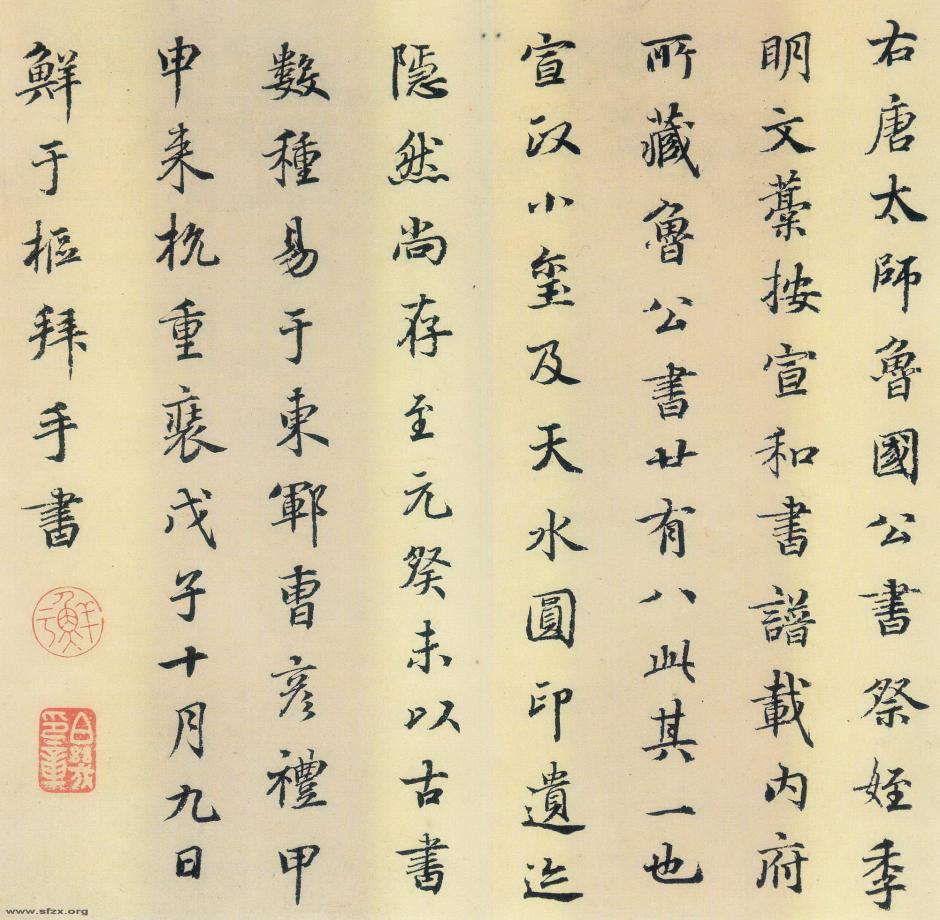 右唐太師魯國公書祭姪季
明文藁按宣和書譜載內府
所藏魯公書廿有八此其一也
宣政小璽及天水圓印遺迹
隱然尚存至元癸未以古書
數種易于東鄆曹彥禮甲
申来杭重裝戊子十月九日
鮮于樞拜手書
www.sfzx.org